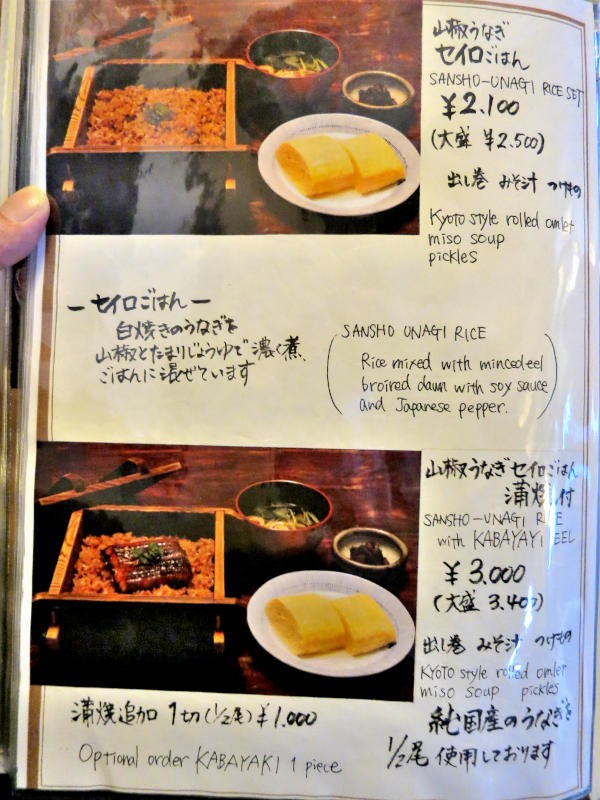 山椒うなぎ
セイロごはん
SANSHO-UNAGI RICE SET
¥2.100
(大盛 ¥2.500)
出し巻 みそ汁 つけもの
Kyoto style rolled omlet
miso soup
pickles
ーセイロごはんー
白焼きのうなぎを
山椒とたまりじょうゆで濃く煮、
ごはんに混ぜています
SANSHO UNAGI RICE
Rice mixed with minced eel
broired daun with soy sauce
and Japanese pepper.
山椒うなぎセイロごはん
蒲焼付
SANSHO-UNAGI RICE
with KABAYAYI EEL
¥3.000
(大盛 3.400)
出し巻 みそ汁 つけもの
KYOTO style rolled omlet
miso soup pickles
蒲焼追加 1切(1/2尾)¥1.000
Optional order KABAYAKI 1 piece
純国産のうなぎを
1/2尾 使用しております